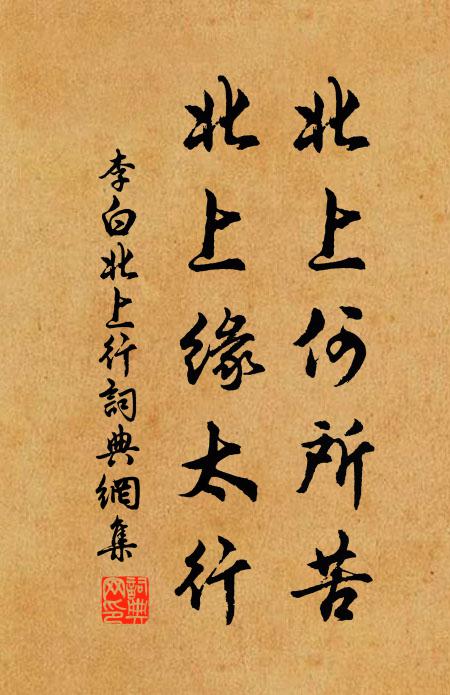 北上何所苦
北上缘太行
李白北上行詞典網集
詞典網印